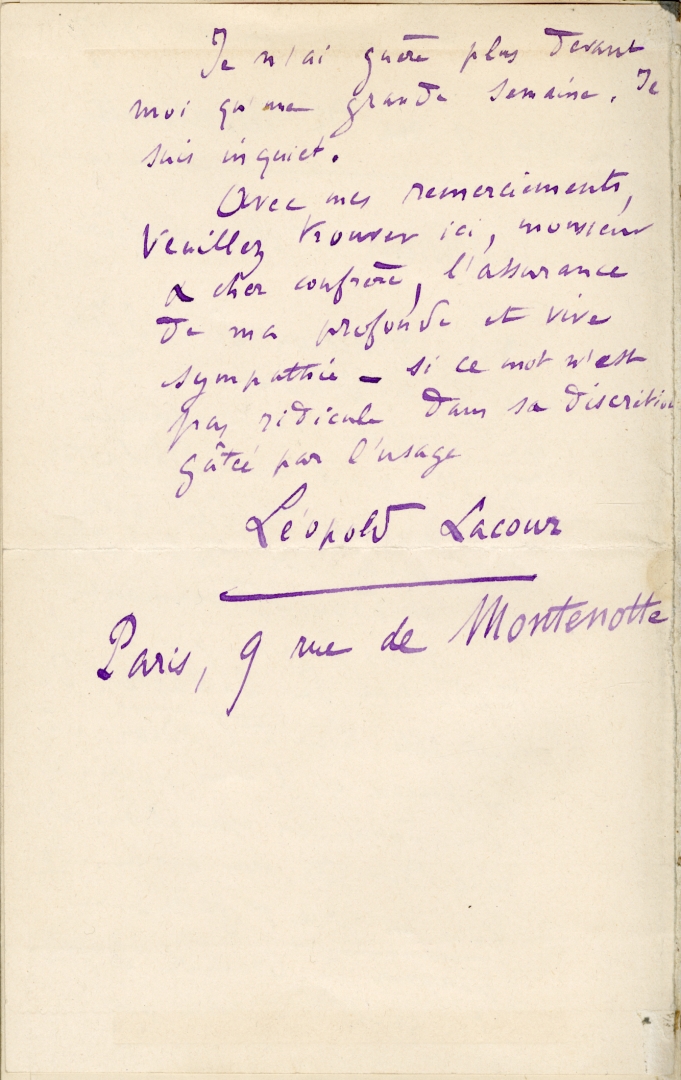 Je n'ai guère plus devant
moi qu'une grande semaine. Je
suis inquiet.
Avec mes remerciements,
Veuillez trouver ici, monsieur
& cher confrère, l'assurance
de ma profonde et vive
sympathie – si ce mot n'est
pas ridicule dans sa discrétion
gâtée par l'usage
Léopold Lacour
Paris, 9 rue de Montenotte